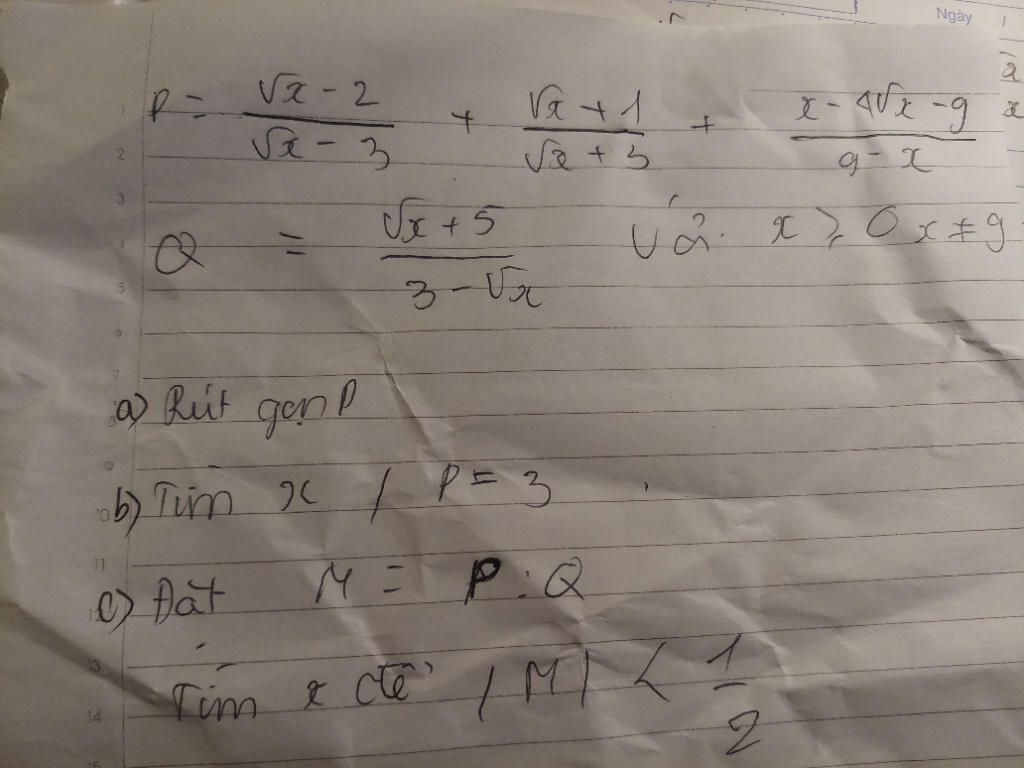 Ngày
P = (√x - 2)/(√x - 3) + (√x + 1)/(√x + 3) + (x - 4√x - 9)/(9 - x)
Q = (√x + 5)/(3 - √x) Vớ x ⩾ 0 x ≠ 9
a) Rút gọn P
b) Tìm x / P = 3
c) Đặt M = P : Q
Tìm x để |M| < 1/2